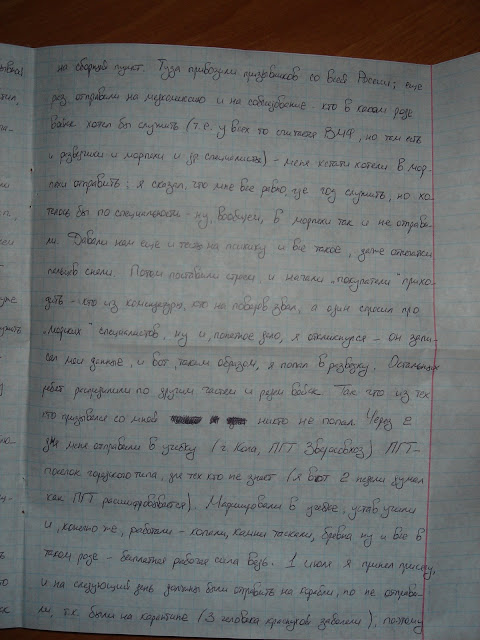 на сборный пункт. Туда привозили призывников со всей России; еще
раз отправили на медкомиссию и на собеседование кто в каком роде
войск хотел бы служить (т.е. у всех то считается ВМФ, но там есть
и разведчики и морпехи и др. специалисты) - меня кстати хотели в мор-
пехи отправить; я сказал, что мне все равно, где год служить, но хо-
телось бы по специальности - ну, вообщем, в морпехи так и не отправи-
ли. Давали нам еще и тесты на психику и все такое, даже отпечатки
пальцев сняли. Потом поставили строем, и начали "покупатели" прихо-
дить - кто из комендатуры, кто на поваров звал, а один спросил про
"морских" специалистов, ну и, понятное дело, я откликнулся - он запи-
сал мои данные, и вот, таким образом, я попал в разведку. Остальных
ребят распределили по другим частям и родам войск. Так что из тех
кто призывался со мной никто не попал. Через 2
дня меня отправили в учебку (г. Кола, ПГТ Зверосовхоз) ПГТ-
поселок городского типа, для тех кто не знает (я вот 2 недели думал
как ПГТ расшифровывается). Маршировали в учебке, устав учили
и, конечно же, работали - копали, камни таскали, бревна ну и все в
таком роде - бесплатная рабочая сила ведь. 1 июля я принял присягу,
и на следующий день должны были отправить на корабли, но не отправи-
ли, т.к. были на карантине (3 человека краснухой заболели), поэтому